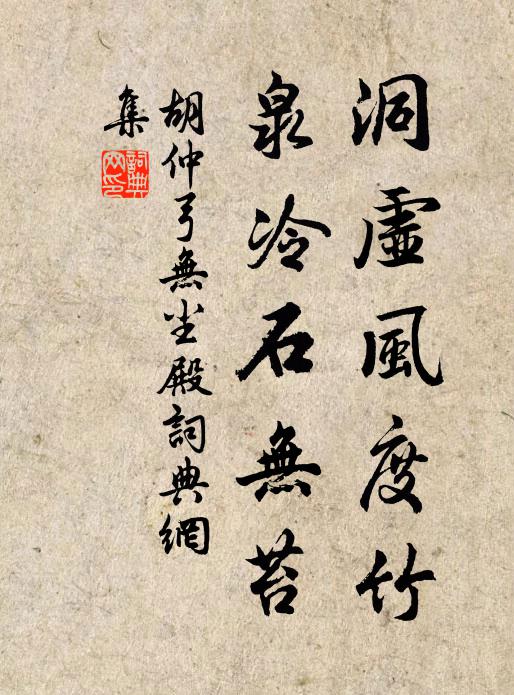 洞虛風度竹
泉冷石無苔
胡仲弓無尘殿詞典網
集
詞典網印